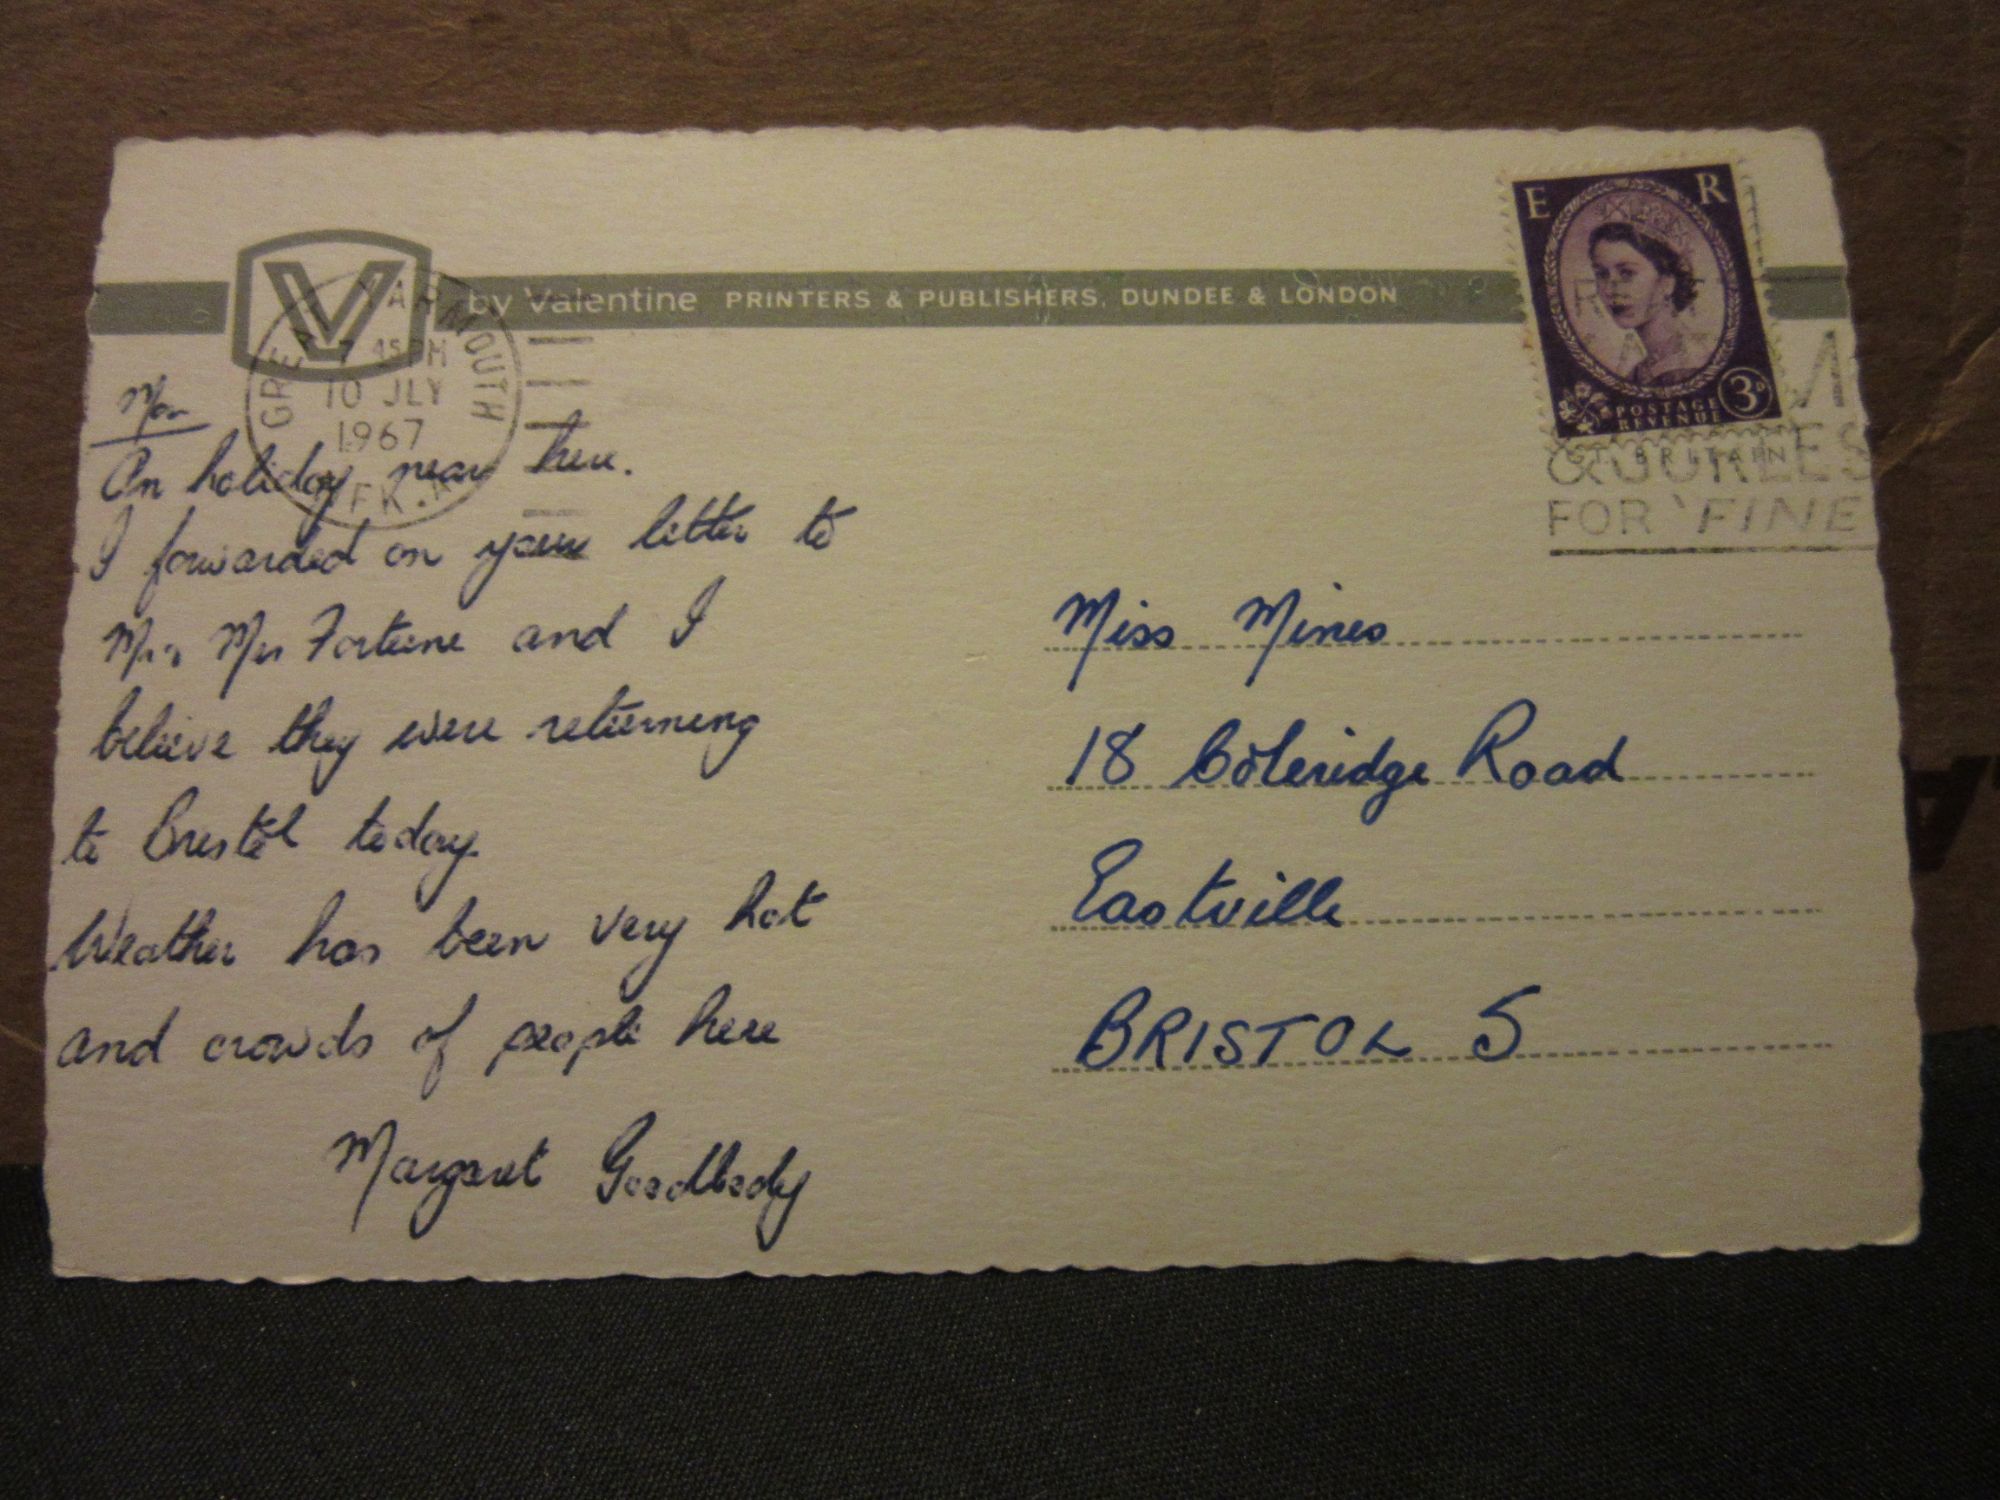 V by Valentine PRINTERS & PUBLISHERS, DUNDEE & LONDON
GREAT YARMOUTH
7 45 PM
10 JLY
1967
NFK.
E R
POSTAGE
REVENUE
3D
GT. BRITAIN
FOR 'FINE
Mon
On holiday near here.
I forwarded on your letter to
Mr & Mrs Fortune and I
believe they were returning
to Bristol today.
Weather has been very hot
and crowds of people here
Margaret Goodbody
Miss Mines
18 Coleridge Road
Eastville
BRISTOL 5